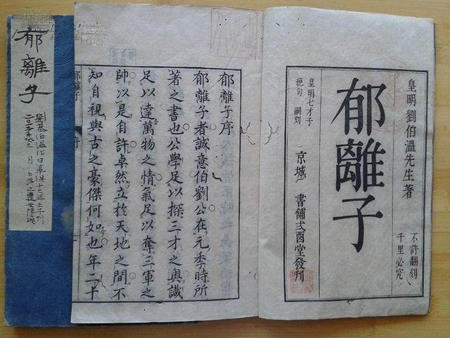 皇明劉伯溫先生著
不許翻刻
千里必究
郁離子
皇明七才子
絶句 嗣刻
京城 書鋪弍酉堂發刋
郁離子序
郁離子者誠意伯劉公在元季時所
著之書也公學足以探三才之奧識
足以達萬物之情氣足以奪三軍之
帥以是自許卓然立於天地之間不
知自視與古之豪傑何如也年二十
郁離子
郁離子